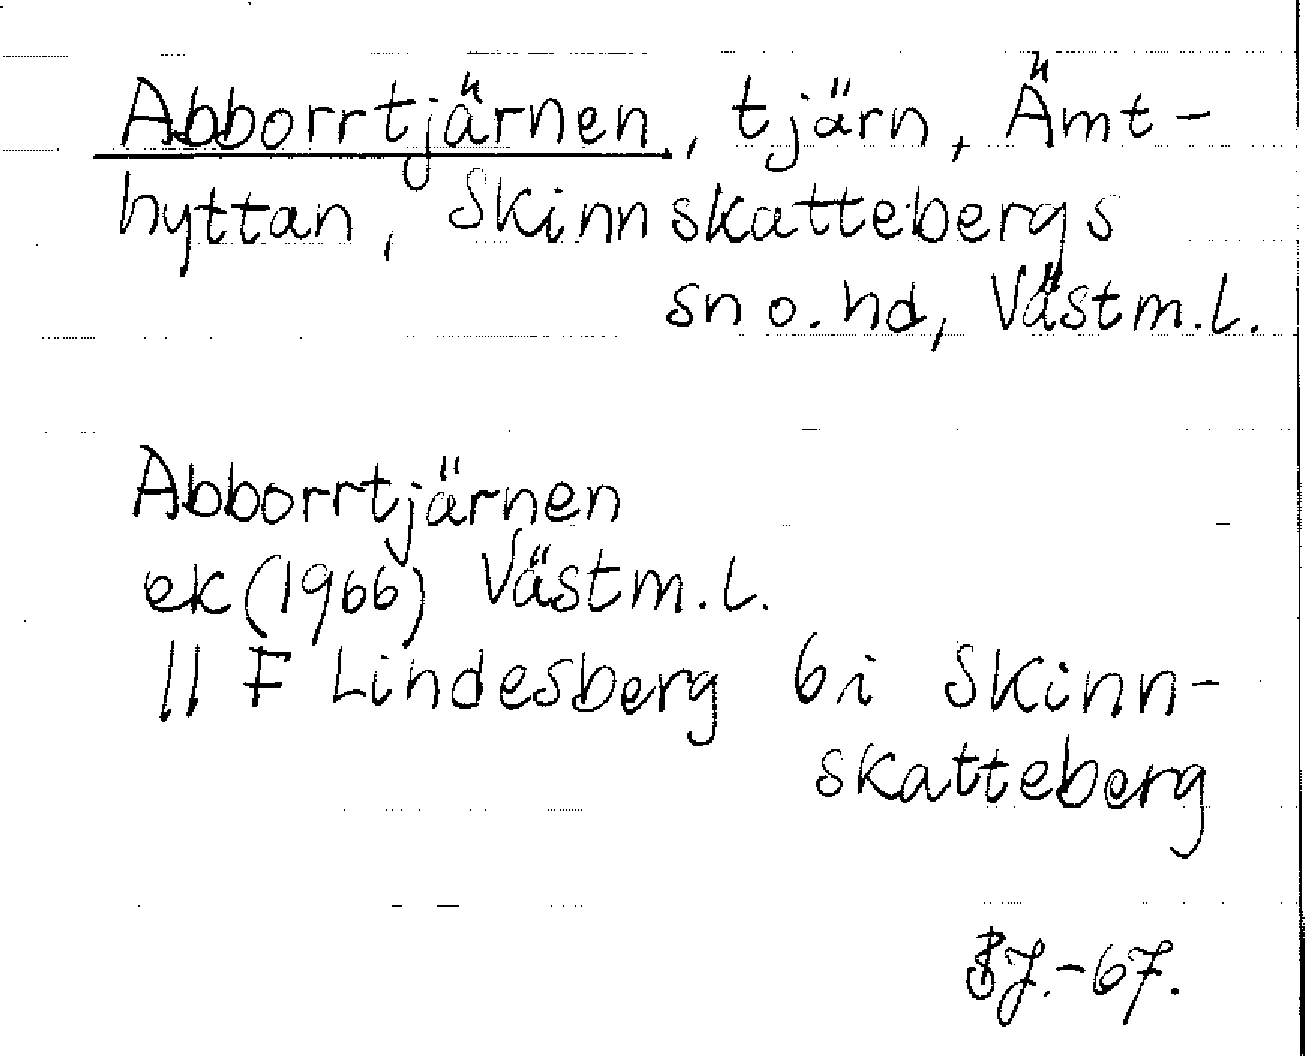 Abborrtjärnen, tjärn, Ämt-
hyttan, Skinnskattebergs
sn o. hd, Västm.l.
Abborrtjärnen
ek (1966) Västm.l.
11 F Lindesberg 6i Skinn-
skatteberg
SJ.-67.